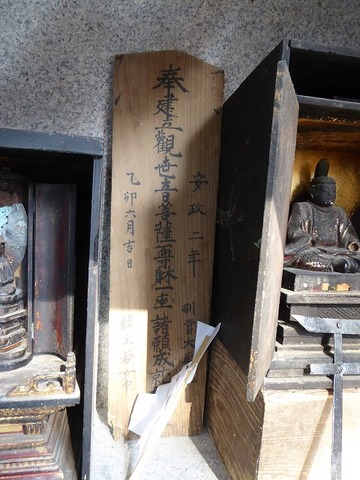 安政二年
別當大
奉建立觀世音菩薩尊躰一座諸願成
乙卯六月吉日